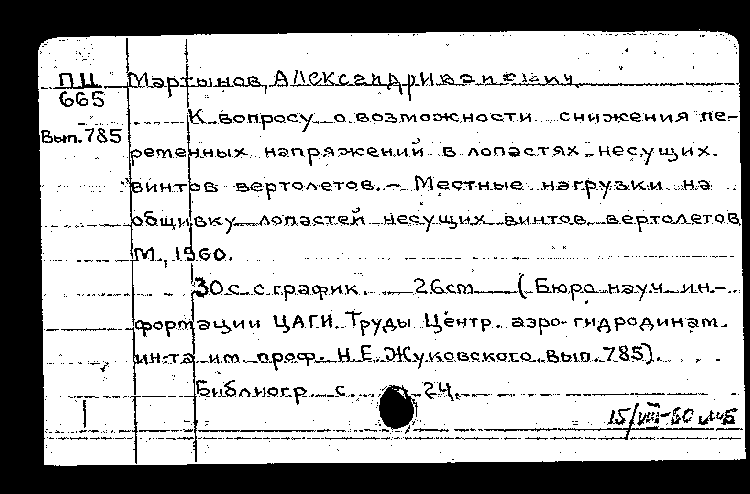 ПЦ Мартынов, Александр Иванович
665
К вопросу о возможности снижения пе-
Вып. 785
ременных напряжений в лопастях несущих
винтов вертолетов. – Местные нагрузки на
обшивку лопастей несущих винтов вертолетов
М., 1960.
30 с. с график. 26cm (Бюро науч. ин-
формации ЦАГИ. Труды Центр. аэро-гидродинам.
ин-та им. проф. Н.Е. Жуковского. Вып. 785).
Библиогр. с. 24.
15/VIII-60